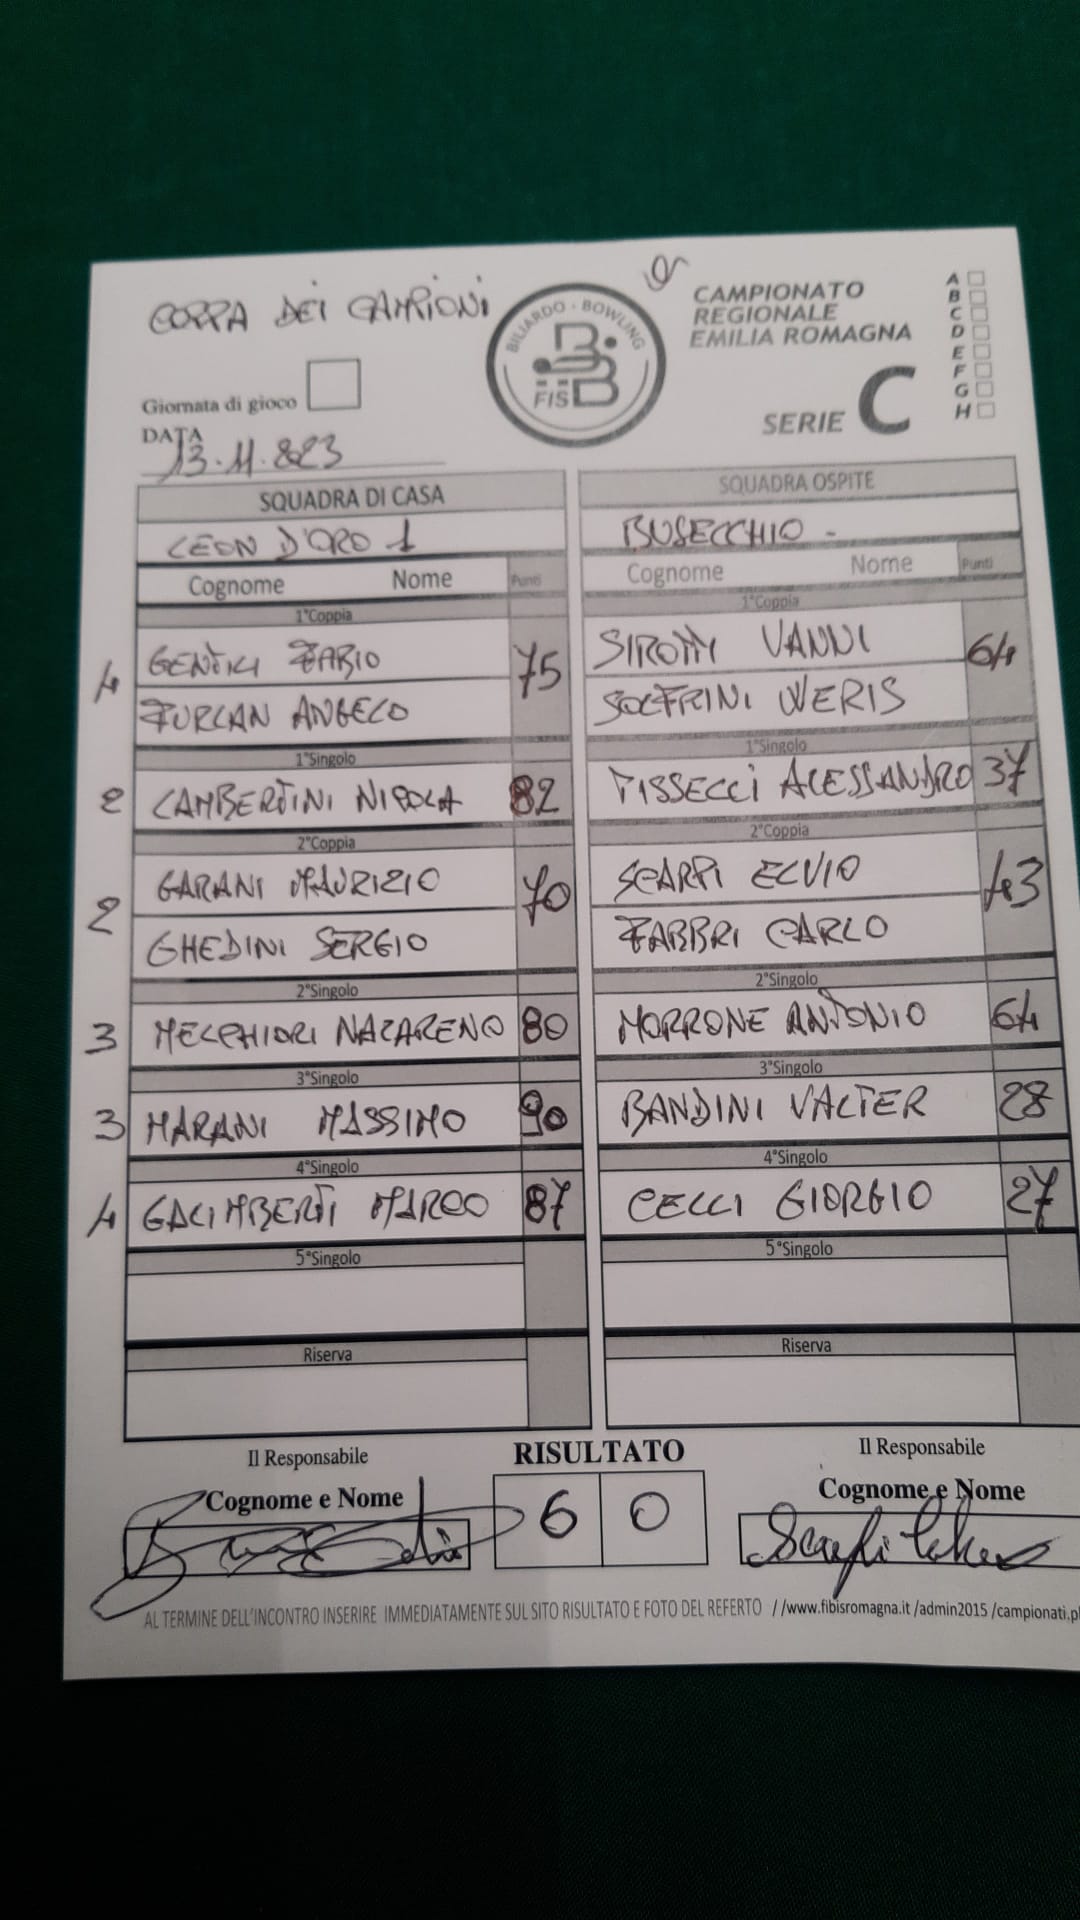 COPPA DEI CAMPIONI
BILIARDO - BOWLING
FIS BB
CAMPIONATO
REGIONALE
EMILIA ROMAGNA
SERIE C
A
B
C
D
E
F
G
H
Giornata di gioco
DATA
13.11.2023
SQUADRA DI CASA SQUADRA OSPITE
LEON D'ORO 1 BUSECCHIO -
Cognome Nome Punti Cognome Nome Punti
1°Coppia 1°Coppia
4 GENTILI FABIO 75 SIROTTI VANNI 64
FURLAN ANGELO SOLFRINI WERIS
1°Singolo 1°Singolo
2 LAMBERTINI NICOLA 82 FISSECCI ALESSANDRO 37
2°Coppia 2°Coppia
2 GARANI MAURIZIO 70 SCARPI ELVIO 43
GHEDINI SERGIO FABBRI CARLO
2°Singolo 2°Singolo
3 MELCHIORI NAZARENO 80 MORRONE ANTONIO 64
3°Singolo 3°Singolo
3 MARANI MASSIMO 90 BANDINI VALTER 28
4°Singolo 4°Singolo
4 GALIMBERTI MARCO 87 CELLI GIORGIO 27
5°Singolo 5°Singolo
Riserva Riserva
Il Responsabile RISULTATO Il Responsabile
Cognome e Nome 6 0 Cognome e Nome
AL TERMINE DELL'INCONTRO INSERIRE IMMEDIATAMENTE SUL SITO RISULTATO E FOTO DEL REFERTO //www.fibisromagna.it /admin2015 /campionati.p